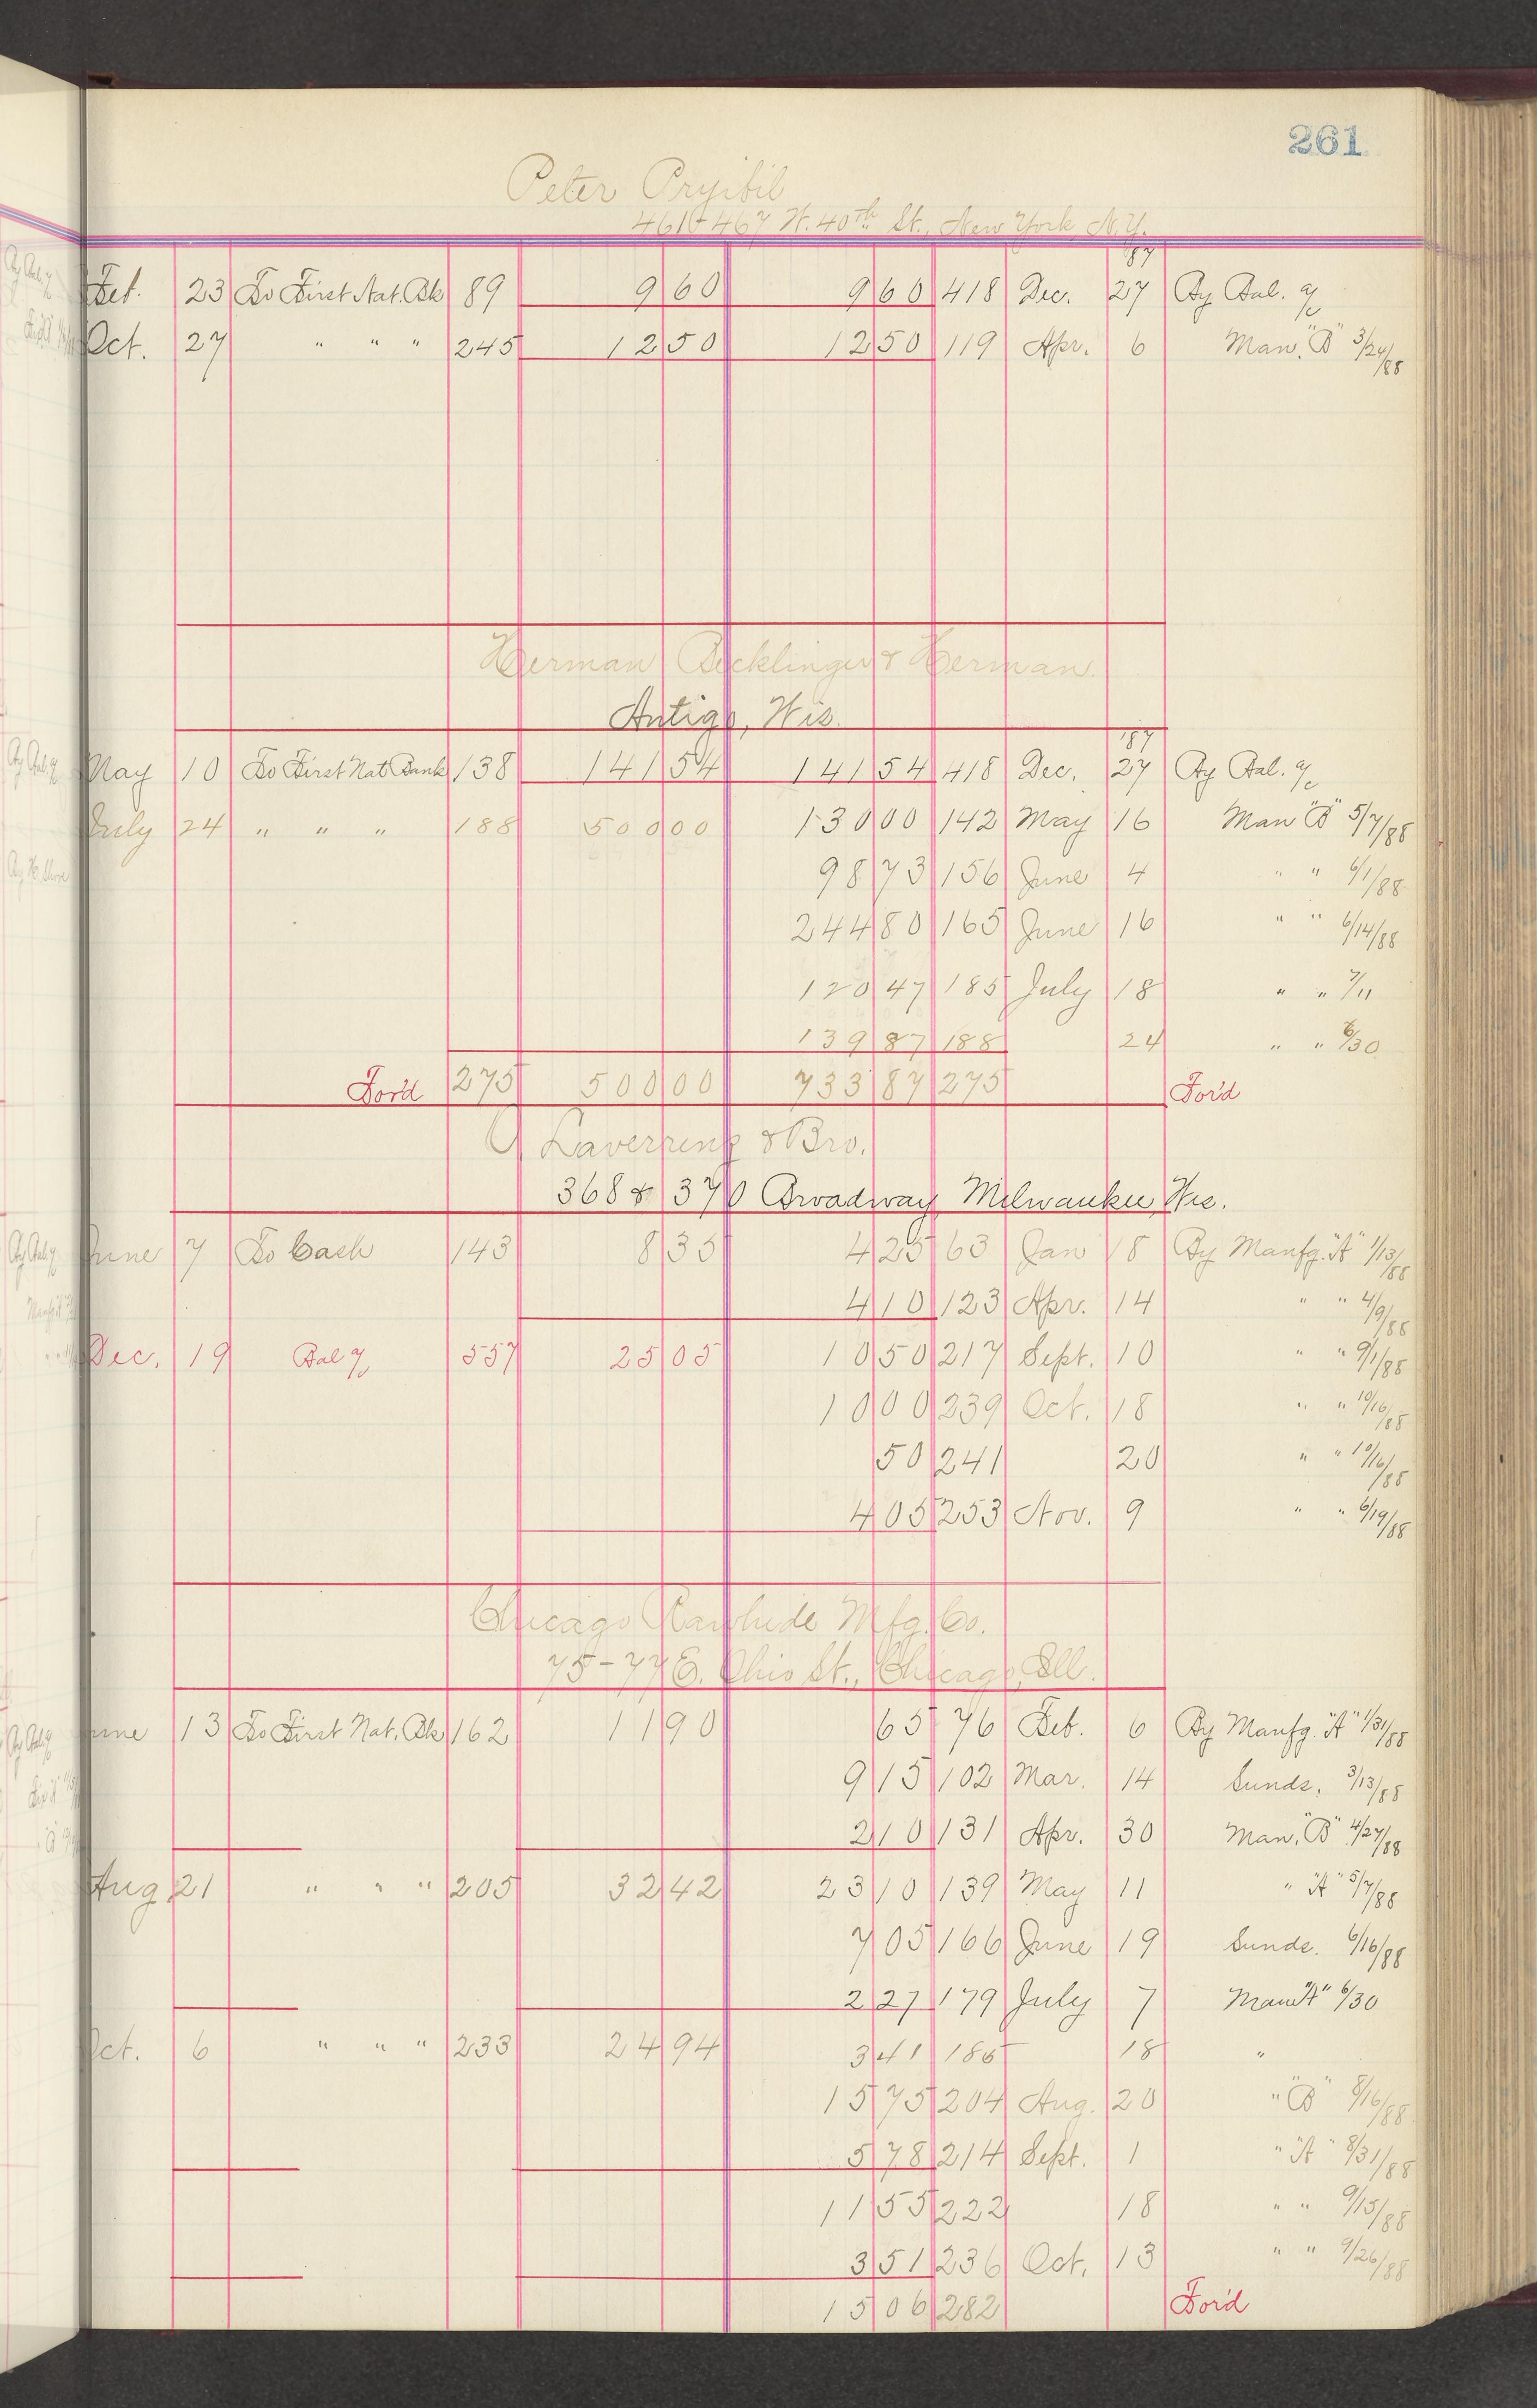 261
Peter Pryibil
461 467 W. 40th St., New York, N.Y.
'87
Feb. 23 To First Nat. Bk 89 9 60 9 60 418 Dec. 27 By Bal. a/c
Oct. 27 " " " 245 12 50 12 50 119 Apr. 6 Man. "B" 3/24/88
Herman Becklinger & Herman
Antigo, Wis.
'87
May 10 To First Nat Bank 138 141 54 141 54 418 Dec. 27 By Bal. a/c
July 24 " " " 188 500 00 130 00 142 May 16 Man "B" 5/7/88
98 73 156 June 4 " " 6/1/88
244 80 165 June 16 " " 6/14/88
120 47 185 July 18 " " 7/11
139 87 188 24 " " 6/30
For'd 275 500 00 733 87 275 For'd
& Bro.
368 & 370 Broadway, Milwaukee, Wis.
June 7 To Cash 143 8 35 4 25 63 Jan 18 By Manfg. "A" 1/13/88
4 10 123 Apr. 14 " " 4/9/88
Dec. 19 Bal a/c 557 25 05 10 50 217 Sept. 10 " " 9/1/88
10 00 239 Oct. 18 " " 10/16/88
50 241 20 " " 10/16/88
4 05 253 Nov. 9 " " 6/19/88
Chicago Rawhide Mfg. Co.
75-77 E. Ohio St., Chicago, Ill.
June 13 To First Nat. Bk 162 11 90 65 76 Feb. 6 By Manfg. "A" 1/31/88
9 15 102 Mar. 14 Sunds. 3/13/88
2 10 131 Apr. 30 Man. "B" 4/27/88
Aug 21 " " " 205 32 42 23 10 139 May 11 " "A" 5/7/88
7 05 166 June 19 Sunds. 6/16/88
2 27 179 July 7 Man "A" 6/30
Oct. 6 " " " 233 24 94 3 41 185 18 "
15 75 204 Aug. 20 " "B" 8/16/88
5 78 214 Sept. 1 " "A" 8/31/88
11 55 222 18 " " 9/15/88
3 51 236 Oct. 13 " " 9/26/88
15 06 282 For'd